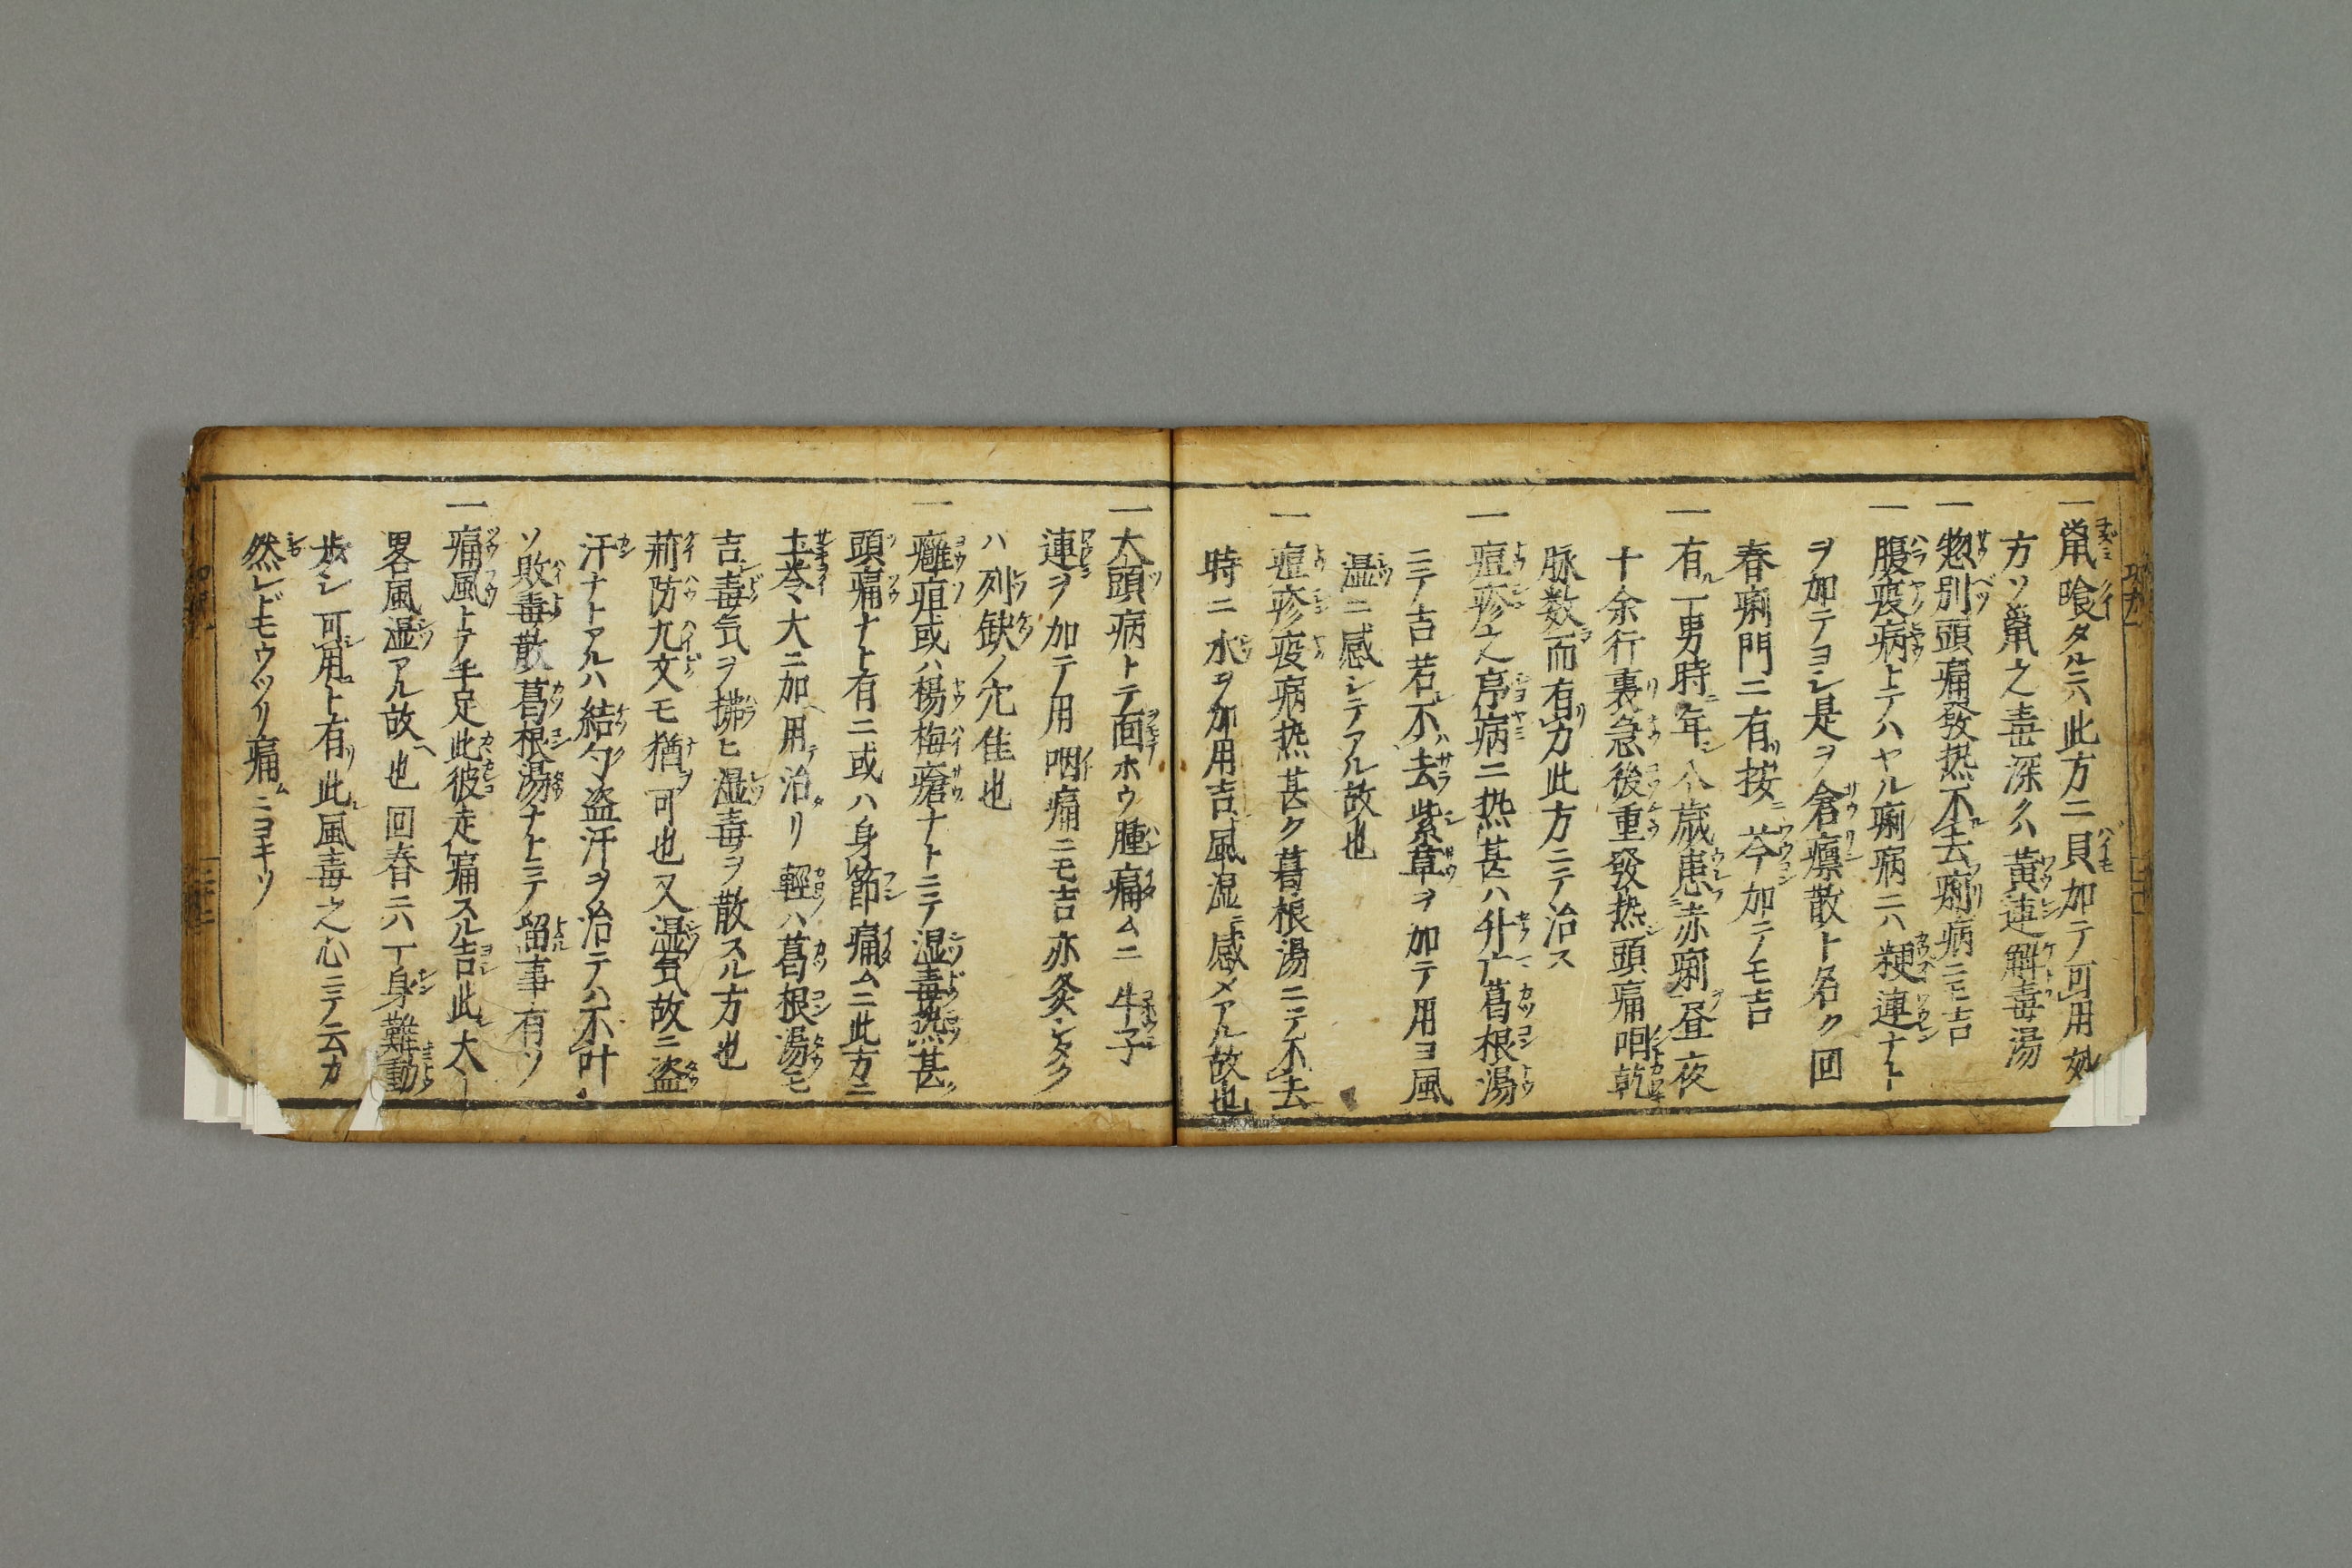 一鼠喰タルニハ此方ニ貝加テ可用処
方ソ鼠之毒深クハ黄連解毒湯
一惣別頭痛發热不去痢病ニモ吉
一腹疫病トテハヤル痢病ニハ粳連ナト
ヲ加テヨシ是ヲ倉廪散ト名ク回
春痢門ニ有按ニ芩加テノモ吉
一有丁男時年八歳患赤痢昼夜
十余行裏急後重發热頭痛咽乾
脉数而有力此方ニテ治ス
一痘疹之序病ニ热甚ハ升广葛根湯
ニテ吉若不去紫草ヲ加テ用ヨ風
湿ニ感シテアル故也
一痘疹疫病热甚ク葛根湯ニテ不去
時ニ氷ヲ加用吉風湿ニ感メアル故也
一大頭病トテ面ホウ腫痛ムニ牛子
連ヲ加テ用咽痛ニモ吉亦灸シタク
ハ列缺ノ穴佳也
一癰疽或ハ楊梅瘡ナトニテ湿毒热甚
頭痛ナト有ニ或ハ身節痛ムニ此方ニ
土苓大ニ加用テ治リ軽ハ葛根湯モ
吉毒気ヲ拂ヒ湿毒ヲ散スル方也
荊防九文モ猶可也又湿気故ニ盗
汗ナトアルハ結句盗汗ヲ治テハ不叶
ソ敗毒散葛根湯ナトニテ留事有ソ
一痛風トテ手足此彼走痛スル吉此大
畧風湿アル故也回春ニハ丁身難動
歩シ可用ト有此風毒之心ニテ云カ
然レドモウツリ痛ニヨキソ